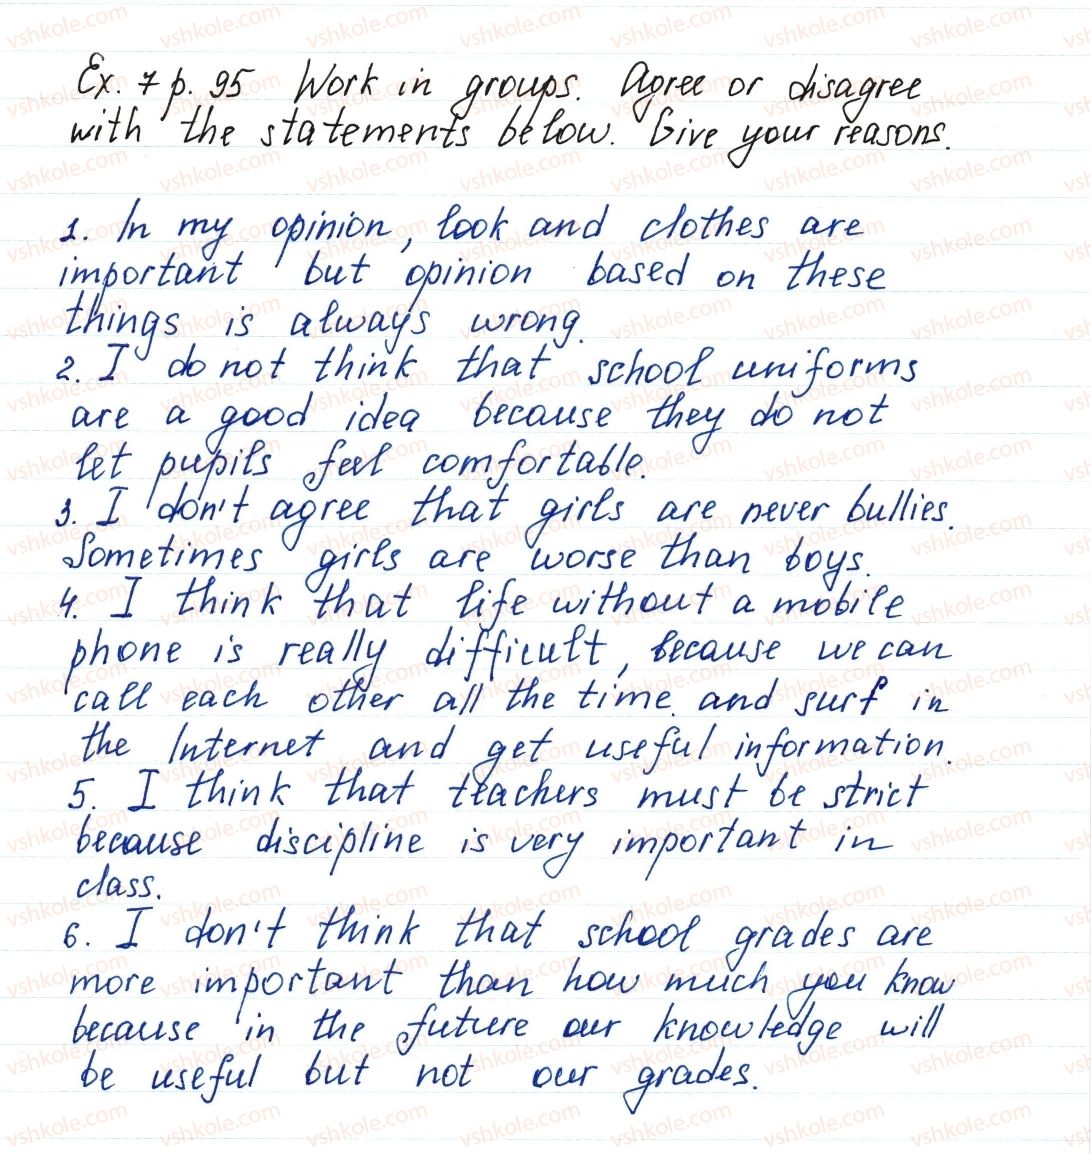 Ex. 7 p. 95 Work in groups. Agree or disagree
with the statements below. Give your reasons.
1. In my opinion, look and clothes are
important but opinion based on these
things is always wrong.
2. I do not think that school uniforms
are a good idea because they do not
let pupils feel comfortable.
3. I don't agree that girls are never bullies.
Sometimes girls are worse than boys.
4. I think that life without a mobile
phone is really difficult, because we can
call each other all the time and surf in
the Internet and get useful information.
5. I think that teachers must be strict
because discipline is very important in
class.
6. I don't think that school grades are
more important than how much you know
because in the future our knowledge will
be useful but not our grades.